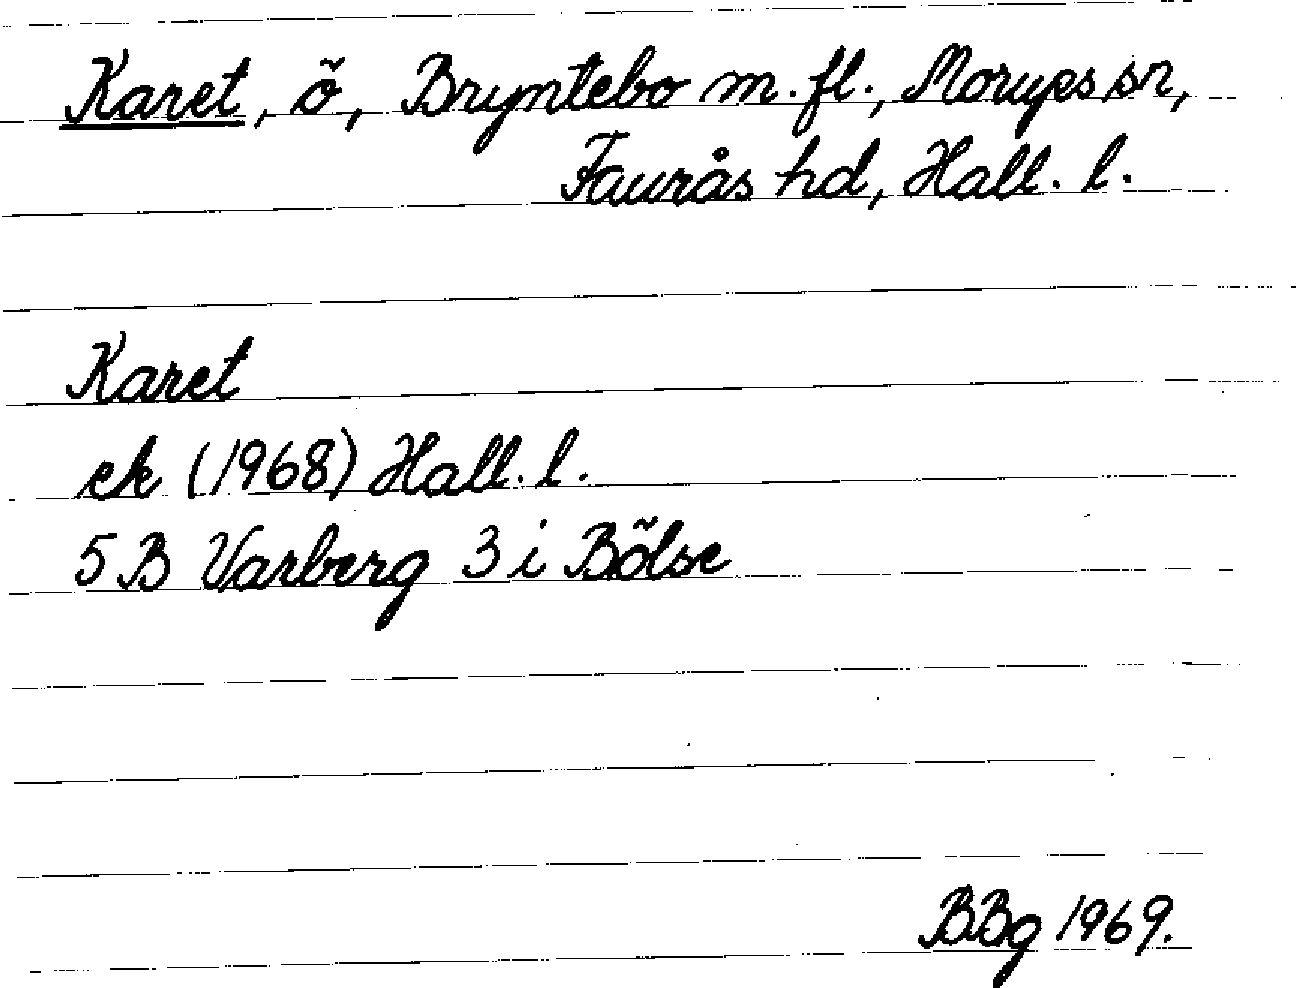 Karet, ö, Bryntebo m.fl., Morups sn,
Faurås hd, Hall. l.
Karet
ek (1968) Hall. l.
5B Varberg 3 i Bölse
BBg 1969.